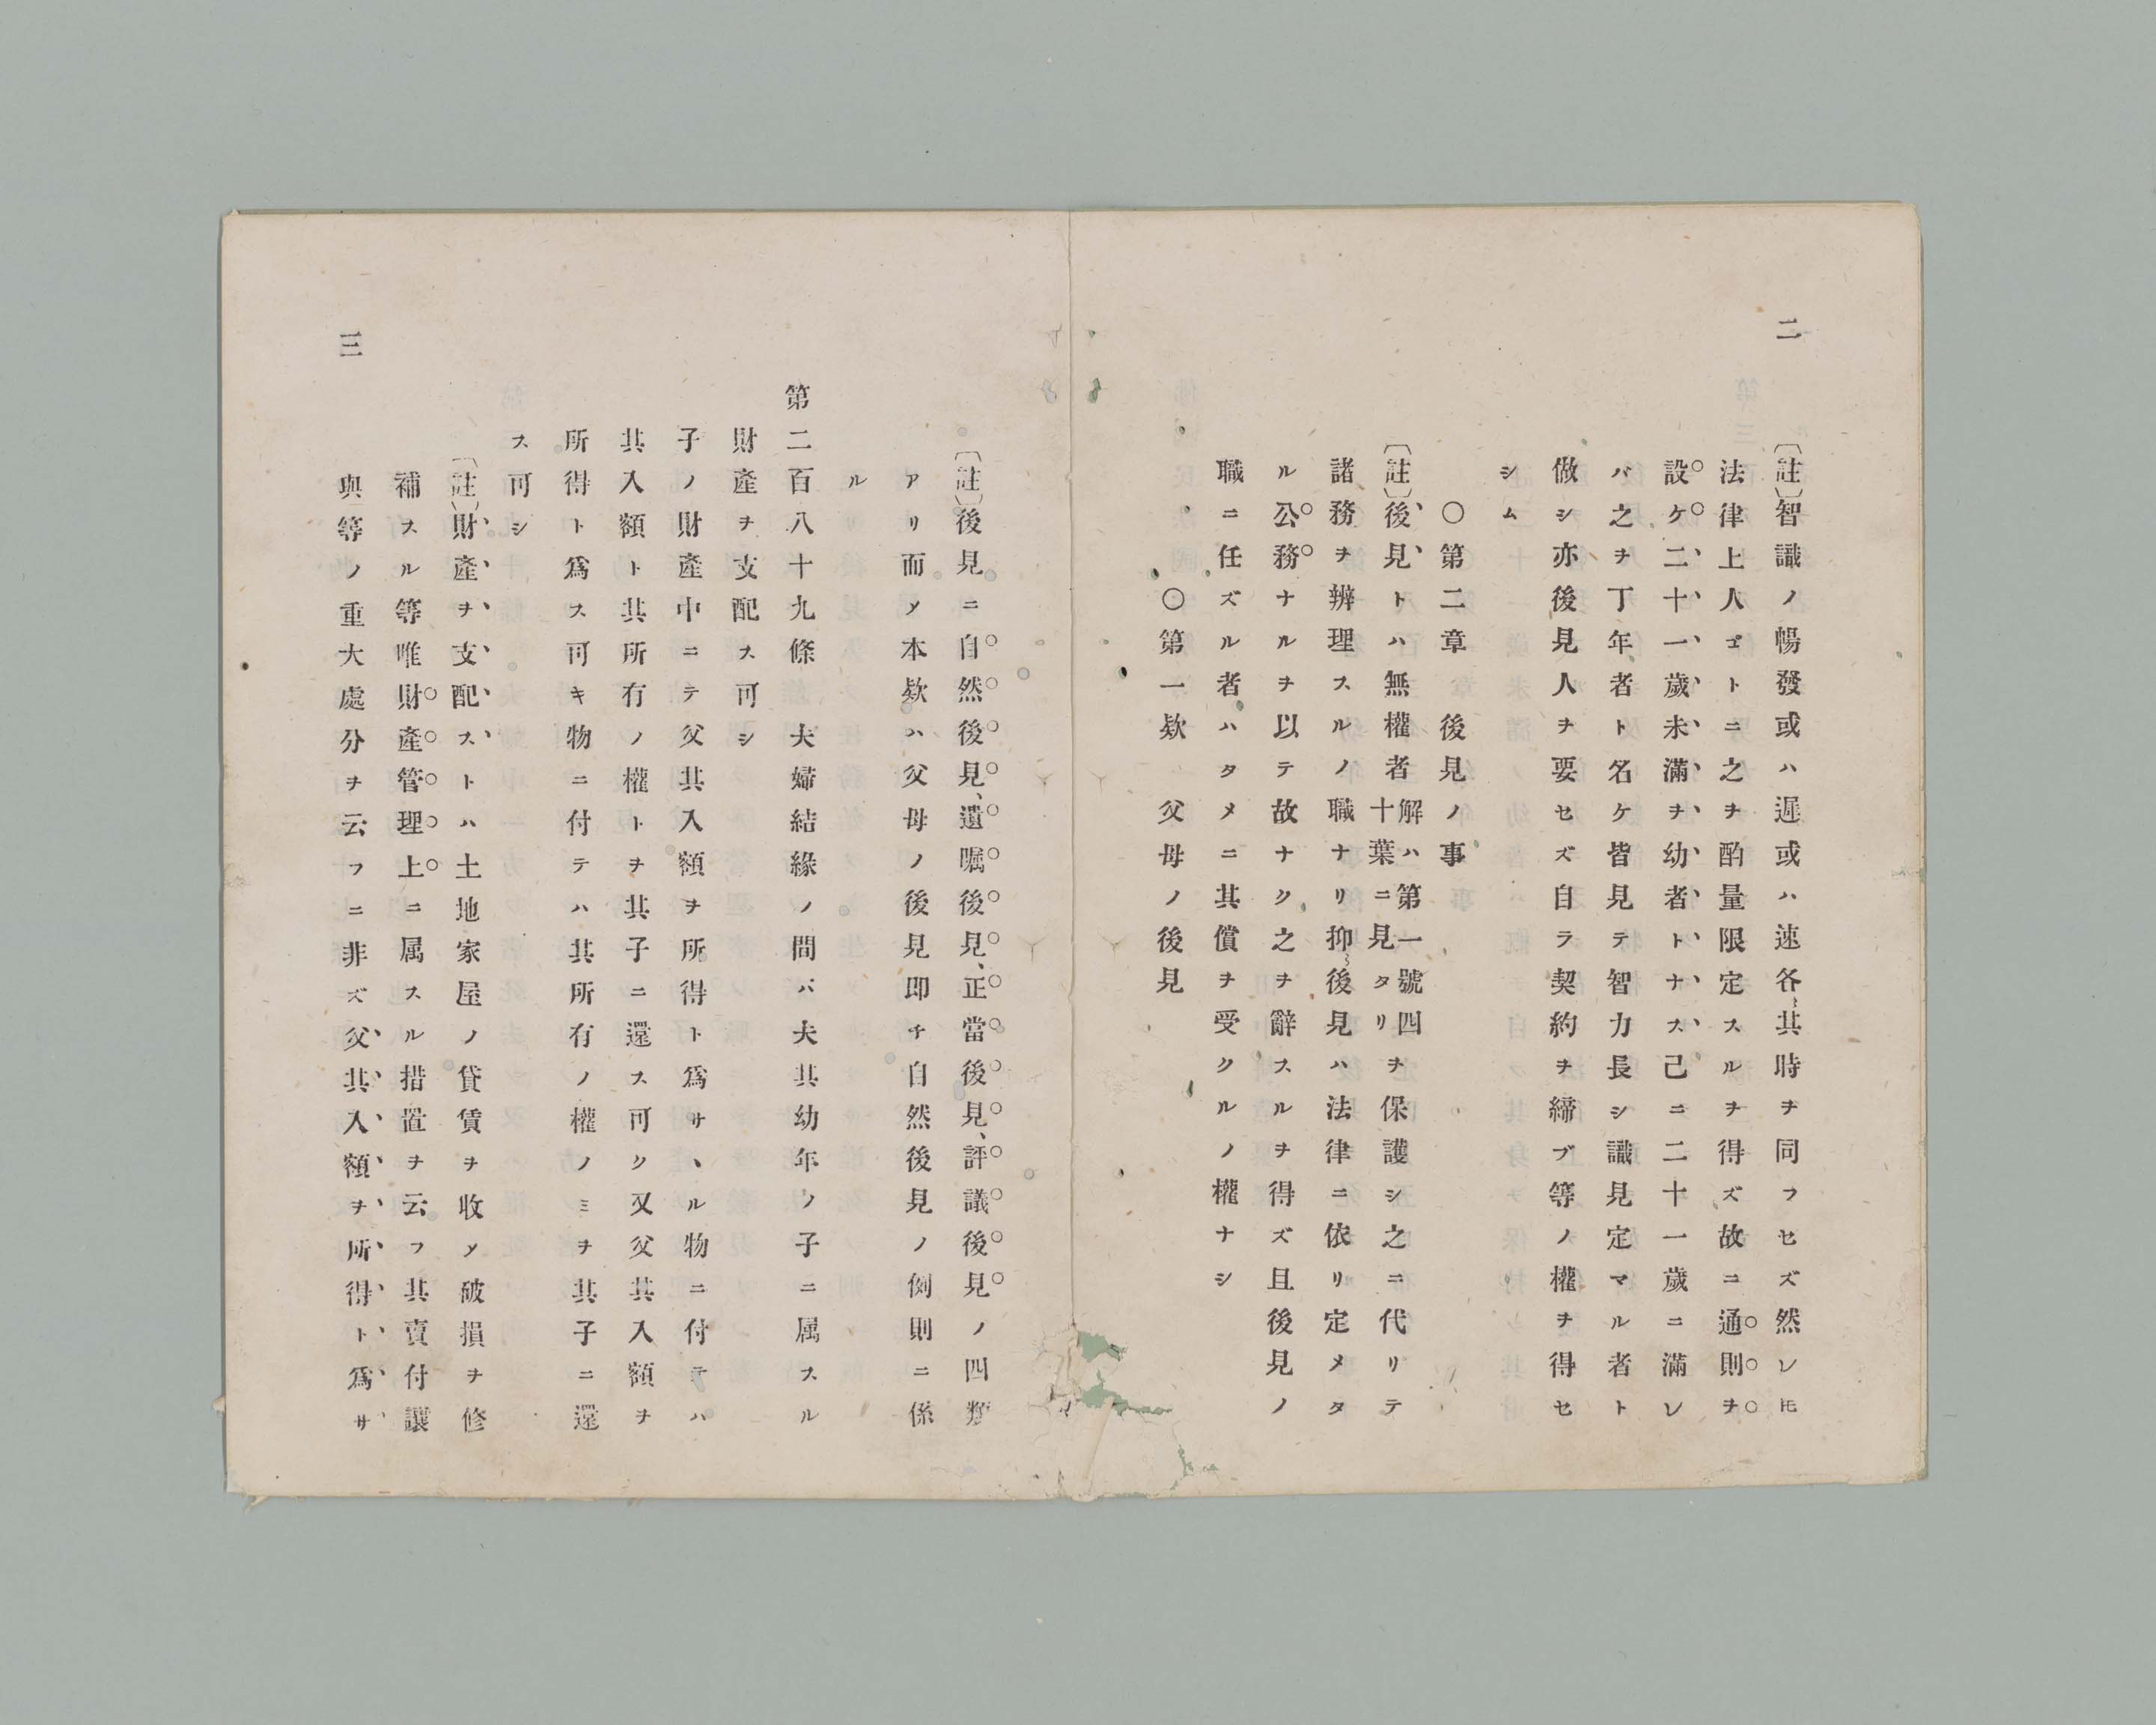 二
〔註〕智識ノ暢發或ハ遲或ハ速各〻其時ヲ同フセズ然レ𪜈
法律上人ゴトニ之ヲ酌量限定スルヲ得ズ故ニ通則ヲ
設ケ二十一歲未滿ヲ幼者トナス己ニ二十一歲ニ滿レ
バ之ヲ丁年者ト名ケ皆見テ智力長シ識見定マル者ト
做シ亦後見人ヲ要セズ自ラ契約ヲ締ブ等ノ權ヲ得セ
シム
〇第二章　後見ノ事
〔註〕後見トハ無權者解ハ第一號四十葉ニ見タリヲ保護シ之ニ代リテ
諸務ヲ辨理スルノ職ナリ抑〻後見ハ法律ニ依リ定メタ
ル公務ナルヲ以テ故ナク之ヲ辭スルヲ得ズ且後見ノ
職ニ任ズル者ハタメニ其償ヲ受クルノ權ナシ
〇第一欵　父母ノ後見
〔註〕後見ニ自然後見、遺囑後見、正當後見、評議後見ノ四類
アリ而メ本欵ハ父母ノ後見即チ自然後見ノ例則ニ係
ル
第二百八十九條　夫婦結緣ノ間バ夫其幼年ノ子ニ属スル
財產ヲ支配ス可シ
子ノ財產中ニテ父其入額ヲ所得ト爲サヽル物ニ付テハ
其入額ト其所有ノ權トヲ其子ニ還ス可ク又父其入額ヲ
所得ト爲ス可キ物ニ付テハ其所有ノ權ノミヲ其子ニ還
ス可シ
〔註〕財產ヲ支配ストハ土地家屋ノ貸賃ヲ收メ破損ヲ修
補スル等唯財產管理上ニ属スル措置ヲ云フ其賣付讓
與等ノ重大處分ヲ云フニ非ズ父其入額ヲ所得ト爲サ
三